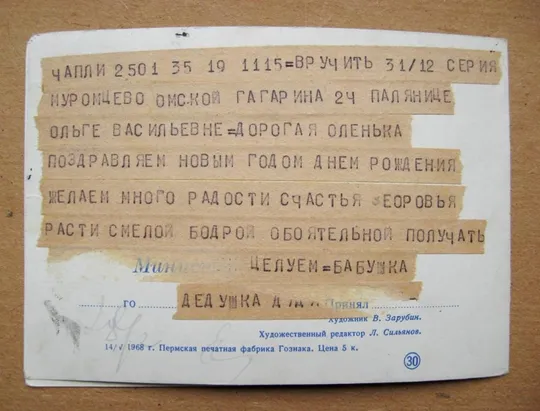 ЧАПЛИ 2501 35 19 1115=ВРУЧИТЬ 31/12 СЕРИЯ
МУРОМЦЕВО ОМСКОЙ ГАГАРИНА 24 ПАЛЯНИЦЕ
ОЛЬГЕ ВАСИЛЬЕВНЕ=ДОРОГАЯ ОЛЕНЬКА
ПОЗДРАВЛЯЕМ НОВЫМ ГОДОМ ДНЕМ РОЖДЕНИЯ
ЖЕЛАЕМ МНОГО РАДОСТИ СЧАСТЬЯ ЗЕОРОВЬЯ
РАСТИ СМЕЛОЙ БОДРОЙ ОБОЯТЕЛЬНОЙ ПОЛУЧАТЬ
ЦЕЛУЕМ=БАБУШКА
го ДЕДУШКА Принял
Художник В. Зарубин.
Художественный редактор Л. Сильянов.
1968 г. Пермская печатная фабрика Гознака. Цена 5 к.
30